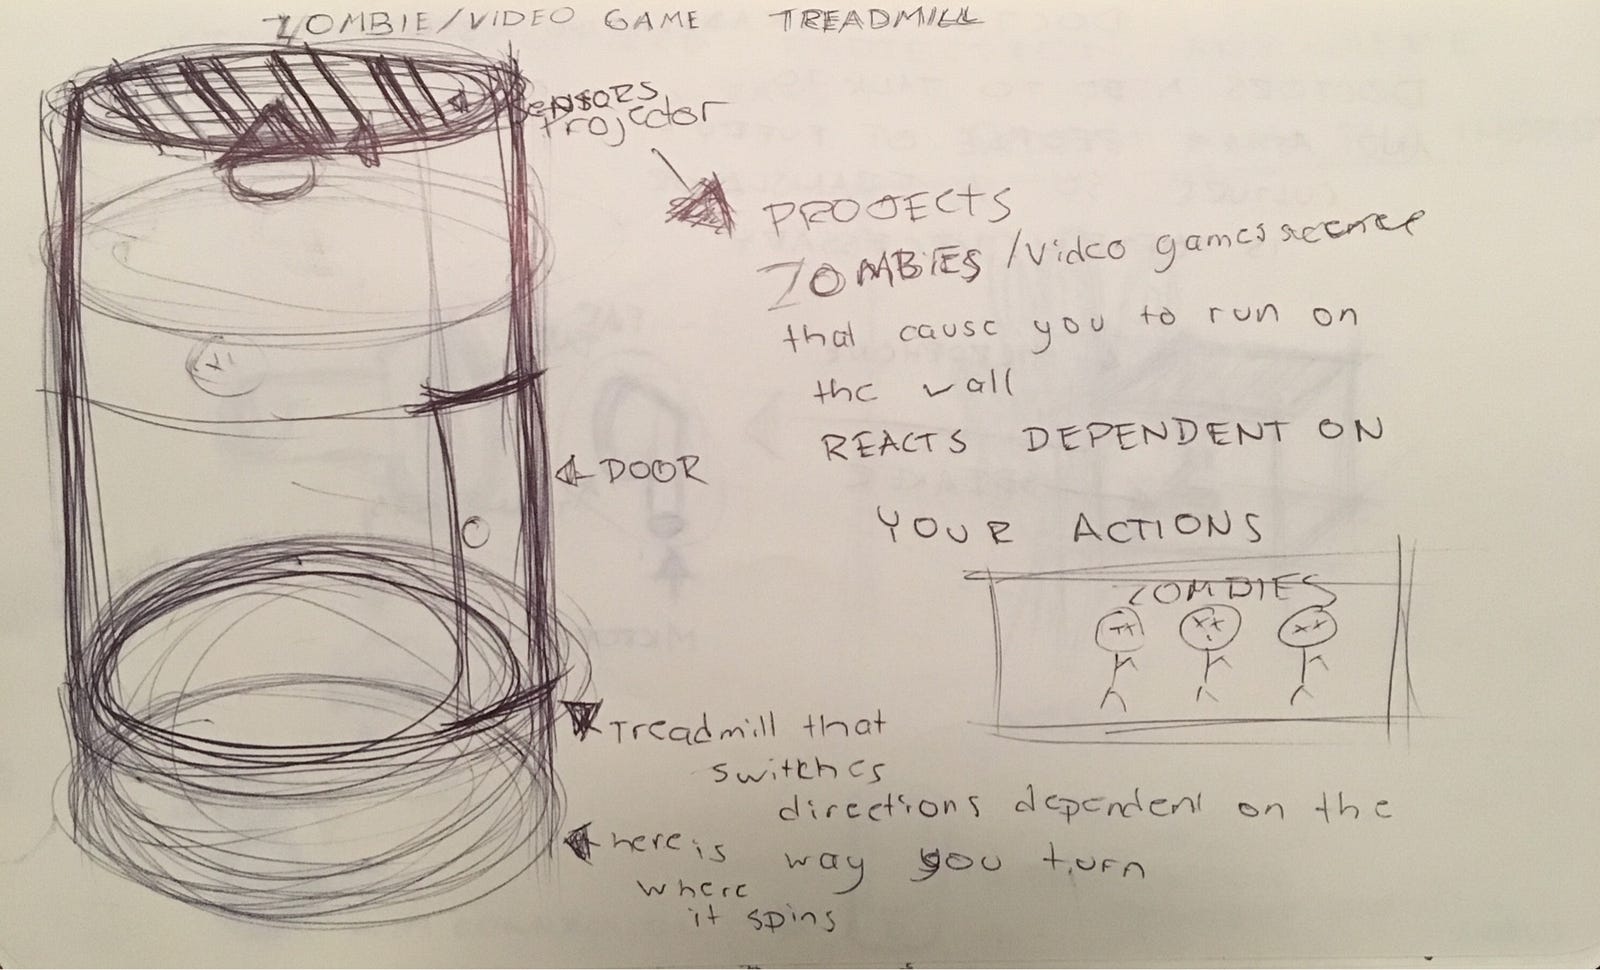 ZOMBIE/VIDEO GAME TREADMILL
SENSORS
Projector
PROJECTS
ZOMBIES /Video games scence
that cause you to run on
the wall
REACTS DEPENDENT ON
YOUR ACTIONS
DOOR
ZOMBIES
Treadmill that
switches
directions dependent on the
way you turn
here is
where
it spins